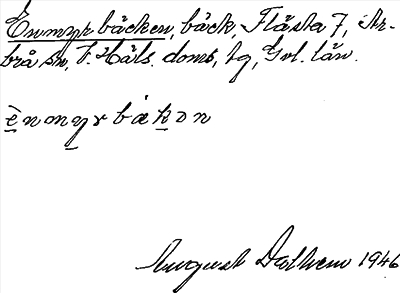 Enmyrbäcken, bäck, Flästa 7, Ar-
brå sn, V. Häls. doms, tg, Gvl. län.
ènmyrbäkɔn
August Dalhem 1946